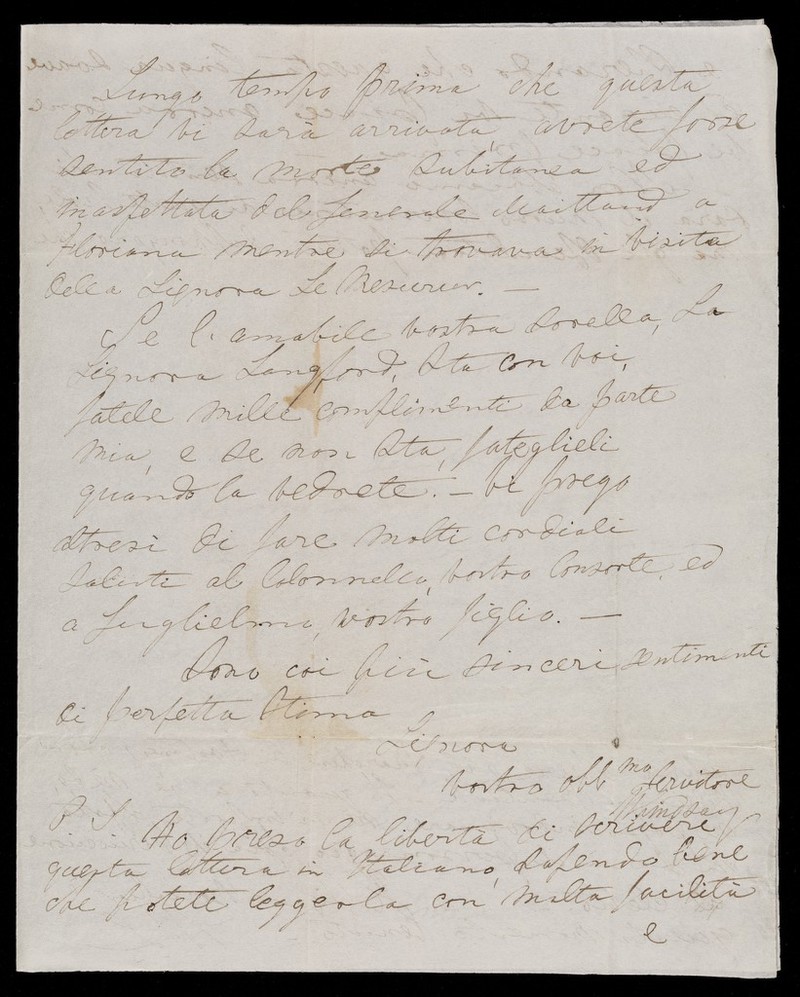 Lungo tempo prima che questa
lettera vi sara arrivata, avrete forse
sentito la morte subitanea ed
inaspettata del Generale Maitland a
Floriana mentre si trovava in visita
della Signora Le Mesurier. —
Se l'amabile vostra sorella, La
Signora Langford, sta con voi,
fatele mille complimenti da parte
mia, e se non sta, fateglieli
quando la vedrete. — Vi prego
altresi di fare molti cordiali
saluti al Colonnello, vostro Consorte, ed
a Guglielmo, vostro figlio. —
Sono coi piu sinceri sentimenti
di perfetta stima
Signora
Vostro obb mo Servitore
P S Ho preso la libertà di scrivere
questa lettera in Italiano, sapendo bene
che potete leggerla con molta facilità
e